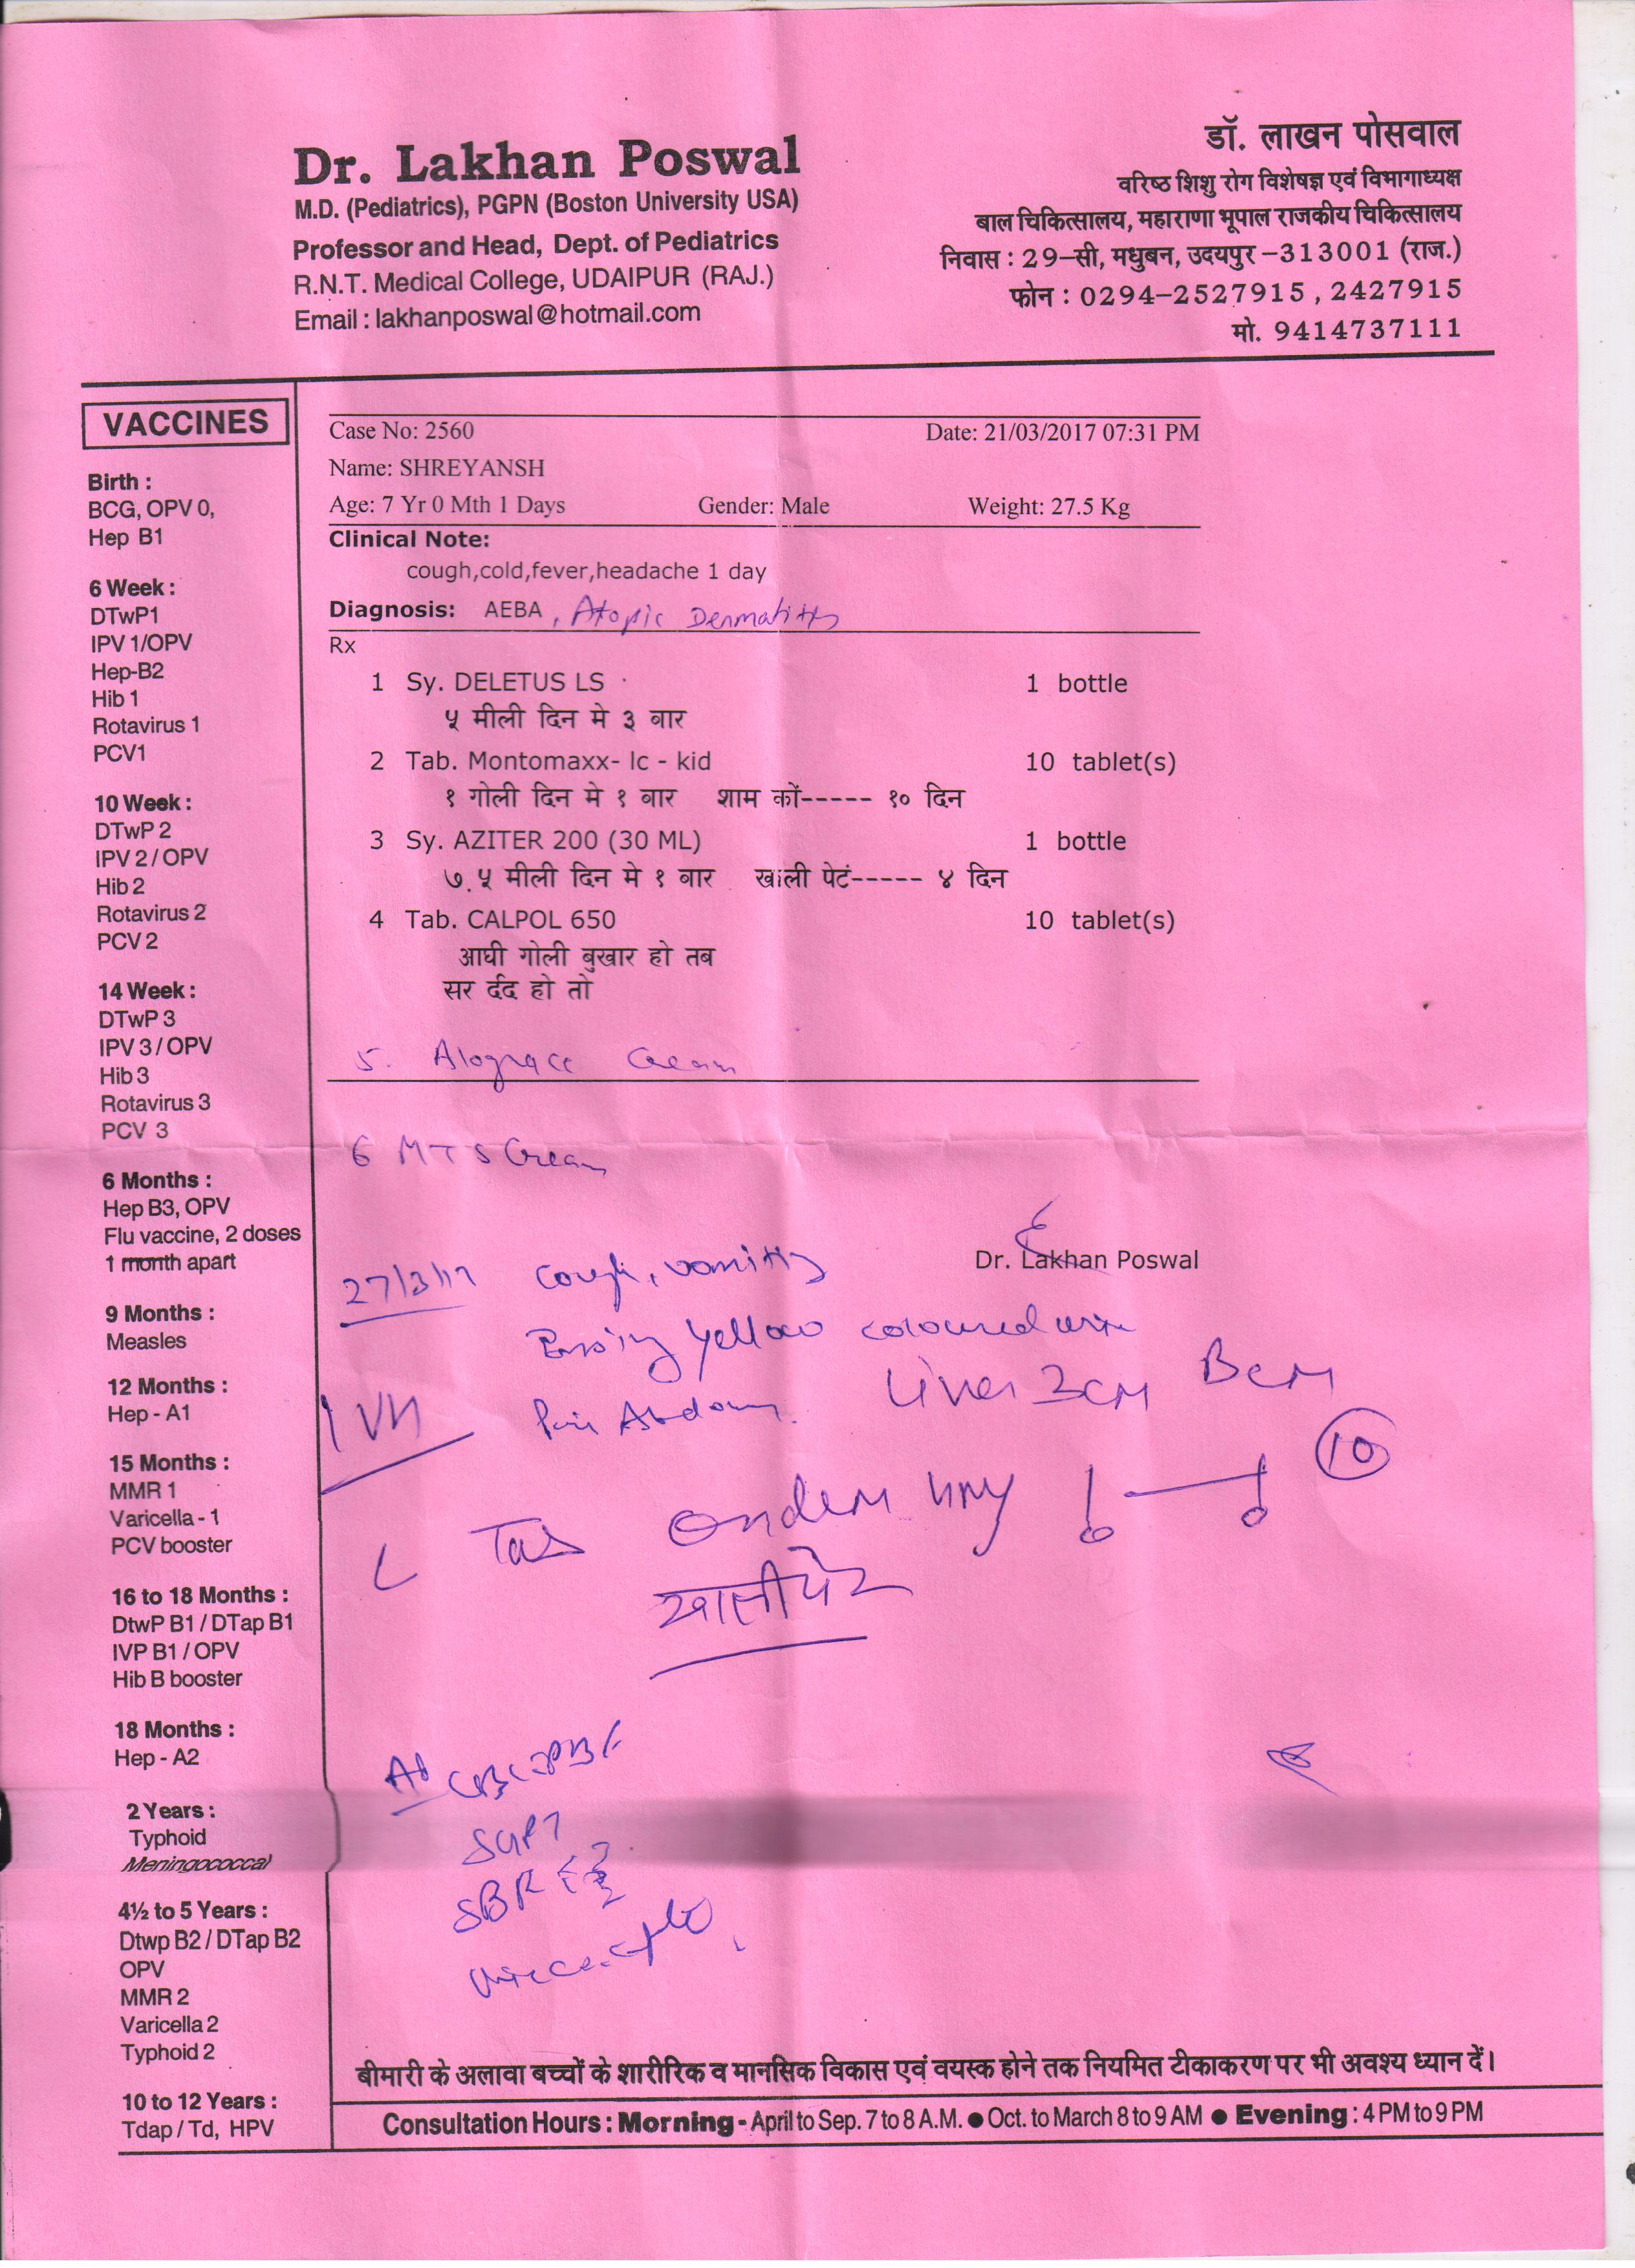 Dr. Lakhan Poswal
M.D. (Pediatrics), PGPN (Boston University USA)
Professor and Head, Dept. of Pediatrics
R.N.T. Medical College, UDAIPUR (RAJ.)
Email : lakhanposwal@hotmail.com
डॉ. लाखन पोसवाल
वरिष्ठ शिशु रोग विशेषज्ञ एवं विभागाध्यक्ष
बाल चिकित्सालय, महाराणा भूपाल राजकीय चिकित्सालय
निवास : 29-सी, मधुबन, उदयपुर-313001 (राज.)
फोन : 0294-2527915, 2427915
मो. 9414737111
VACCINES
Birth :
BCG, OPV 0,
Hep B1
6 Week :
DTwP1
IPV 1/OPV
Hep-B2
Hib 1
Rotavirus 1
PCV1
10 Week :
DTwP 2
IPV 2 / OPV
Hib 2
Rotavirus 2
PCV 2
14 Week :
DTwP 3
IPV 3 / OPV
Hib 3
Rotavirus 3
PCV 3
6 Months :
Hep B3, OPV
Flu vaccine, 2 doses
1 month apart
9 Months :
Measles
12 Months :
Hep - A1
15 Months :
MMR 1
Varicella - 1
PCV booster
16 to 18 Months :
DtwP B1 / DTap B1
IVP B1 / OPV
Hib B booster
18 Months :
Hep - A2
2 Years :
Typhoid
Meningococcal
4½ to 5 Years :
Dtwp B2 / DTap B2
OPV
MMR 2
Varicella 2
Typhoid 2
10 to 12 Years :
Tdap / Td, HPV
Case No: 2560 Date: 21/03/2017 07:31 PM
Name: SHREYANSH
Age: 7 Yr 0 Mth 1 Days Gender: Male Weight: 27.5 Kg
Clinical Note:
cough,cold,fever,headache 1 day
Diagnosis: AEBA , Atopic Dermatitis
Rx
1 Sy. DELETUS LS 1 bottle
५ मीली दिन मे ३ बार
2 Tab. Montomaxx- lc - kid 10 tablet(s)
१ गोली दिन मे १ बार शाम कों----- १० दिन
3 Sy. AZITER 200 (30 ML) 1 bottle
७.५ मीली दिन मे १ बार खाली पेटं----- ४ दिन
4 Tab. CALPOL 650 10 tablet(s)
आघी गोली बुखार हो तब
सर र्दद हो तो
5. Alograce Cream
6 MTS Cream
Dr. Lakhan Poswal
27/3/17 Cough, vomiting
Passing yellow coloured urine
Pain Abdomen Liver 3cm BCM
Tab Ondem 4mg 10
खाली पेट
Ad CBC PBF
SGPT
SBR
Urine C
बीमारी के अलावा बच्चों के शारीरिक व मानसिक विकास एवं वयस्क होने तक नियमित टीकाकरण पर भी अवश्य ध्यान दें।
Consultation Hours : Morning - April to Sep. 7 to 8 A.M. ● Oct. to March 8 to 9 AM ● Evening : 4 PM to 9 PM